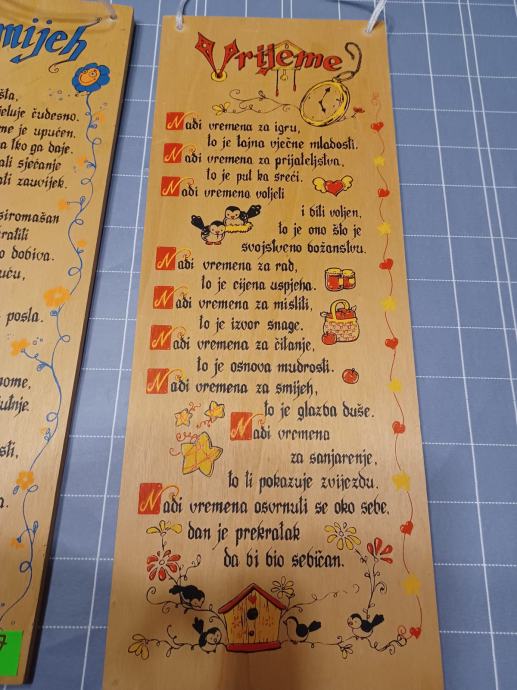 mijeh
čudesno.
je upućen.
tko ga daje.
sjećanje
zauvijek.
siromašan
dobiva.
posla.
Vrijeme
Nađi vremena za igru,
to je tajna vječne mladosti.
Nađi vremena za prijateljstva,
to je put ka sreći.
Nađi vremena voljeti
i biti voljen,
to je ono što je
svojstveno božanstvu.
Nađi vremena za rad,
to je cijena uspjeha.
Nađi vremena za misliti,
to je izvor snage.
Nađi vremena za čitanje,
to je osnova mudrosti.
Nađi vremena za smijeh,
to je glazba duše.
Nađi vremena
za sanjarenje,
to ti pokazuje zvijezdu.
Nađi vremena osvrnuti se oko sebe,
dan je prekratak
da bi bio sebičan.